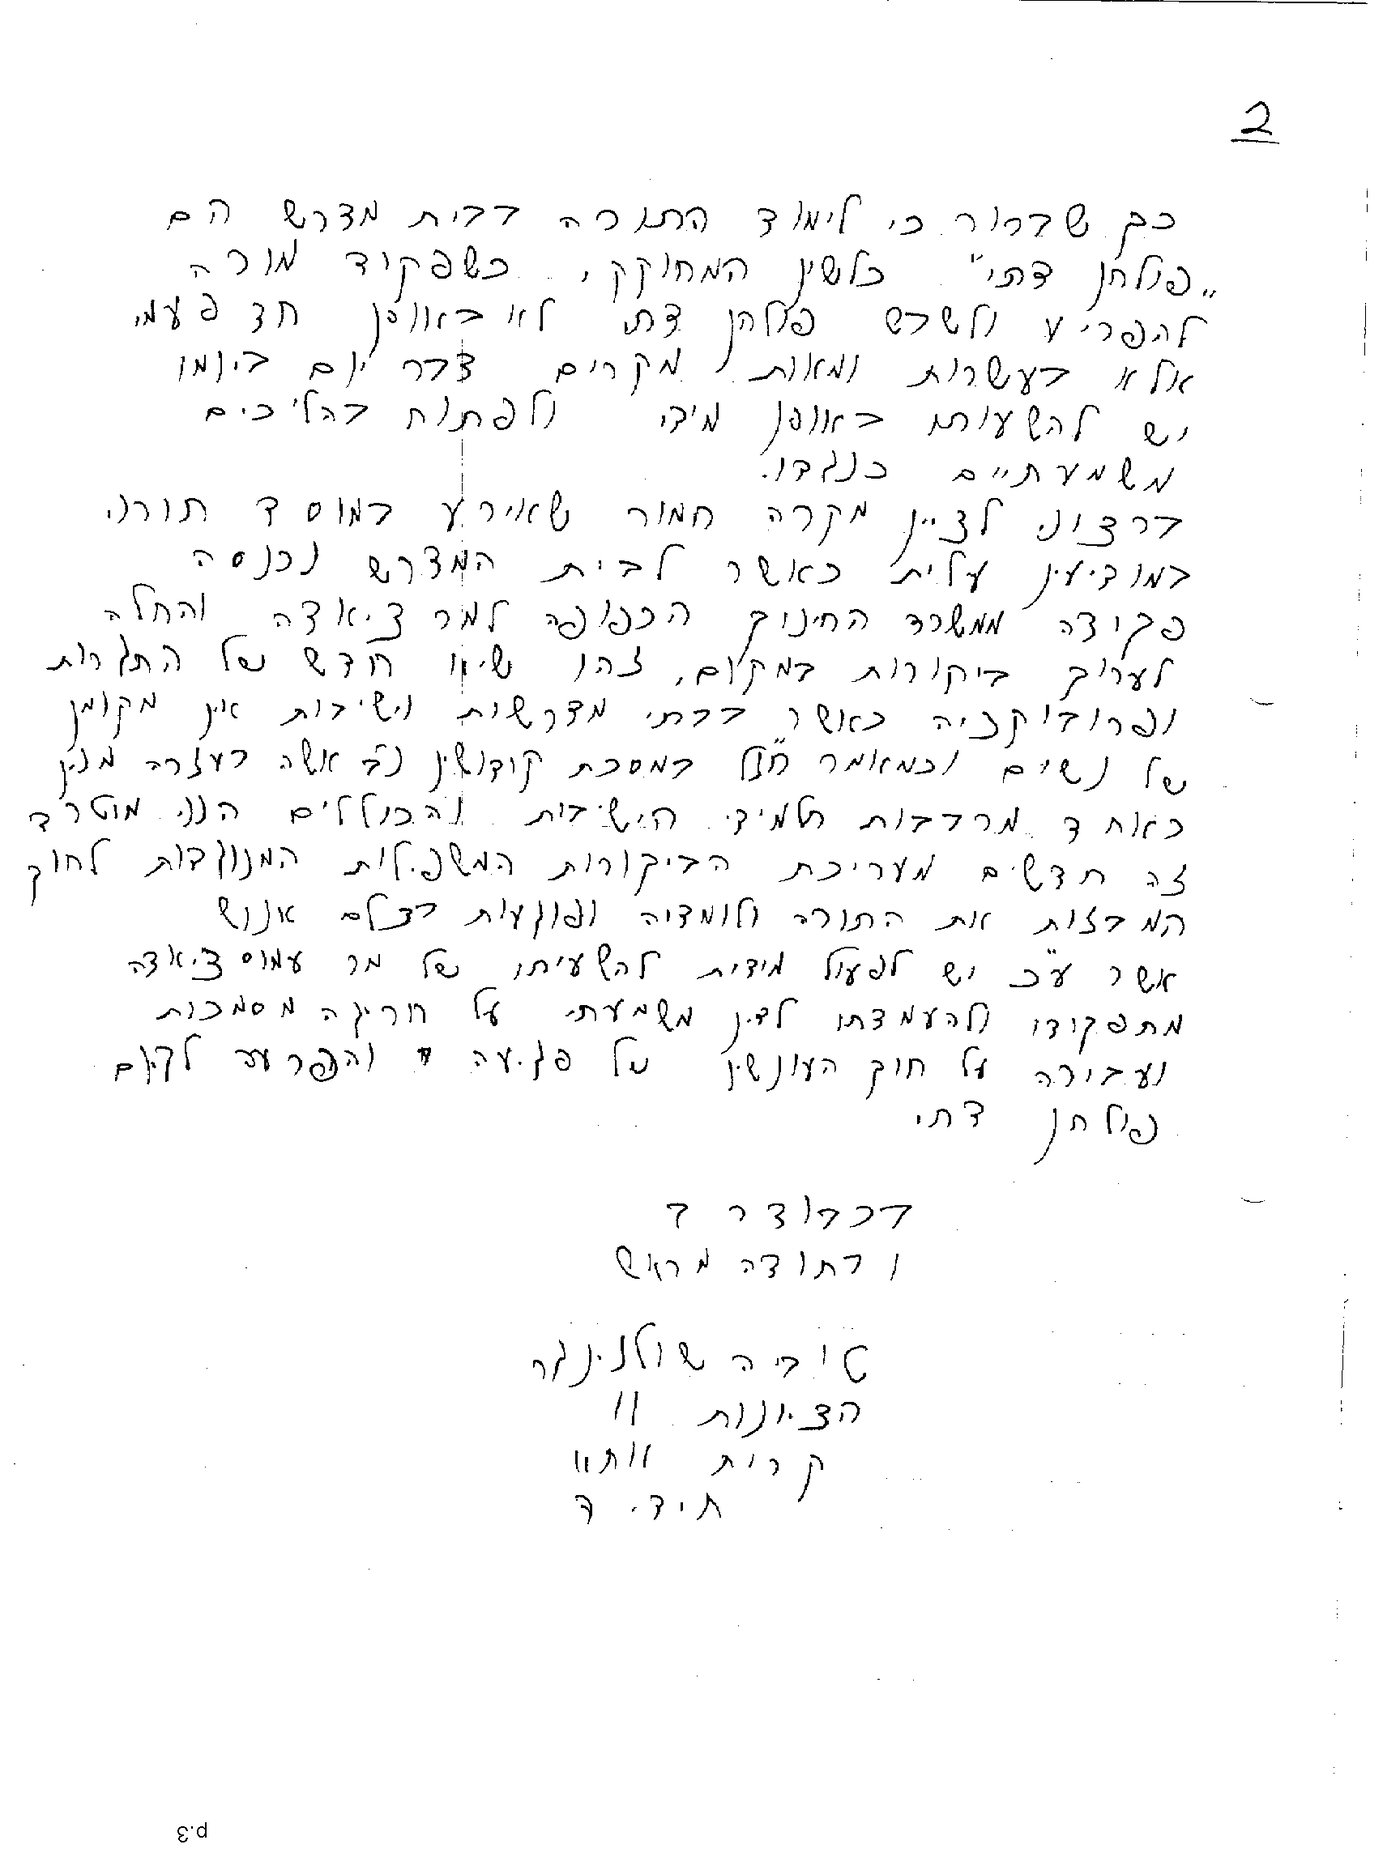 2
כך שברור כי לימוד התורה בבית מדרש הם
"פולחן דתי" כלשון המחוקק, כשפקוד מורה
להפריע ולשבש פולחן דתי לא באופן חד פעמי
אלא בעשרות ומאות מקרים דבר יום ביומו
יש להשעותו באופן מידי ולפתוח בהליכים
משמעתיים כנגדו.
ברצוני לציין מקרה חמור שאירע במוסד תורני
במודיעין עלית כאשר לבית המדרש נכנסה
פקודה ממשרד החינוך הכפופה למר ציאדה והחלה
לערוך ביקורות במקום, זהו שיא חדש של התגרות
ופרובוקציה כאשר בבתי מדרשות וישיבות אין מקומן
של נשים וכמאמר חז"ל במסכת קידושין נב אשה בעזרה מנין
כאחד מרבבות תלמידי הישיבות והכוללים הנני מוטרד
זה חדשים מעריכת הביקורות המשפילות המנוגדות לחוק
המבזות את התורה ולומדיה ופוגעות בצלם אנוש
אשר ע"כ יש לפעול מידית להשעיתו של מר עמוס ציאדה
מתפקודו ולהעמדתו לדין משמעתי על חריגה מסמכות
ועבירה על חוק העונשין של פגיעה והפרעה לקיום
פולחן דתי
בכבוד רב
ובתודה מראש
טוביה שולזינגר
הציונות 11
קרית אתא
p.3